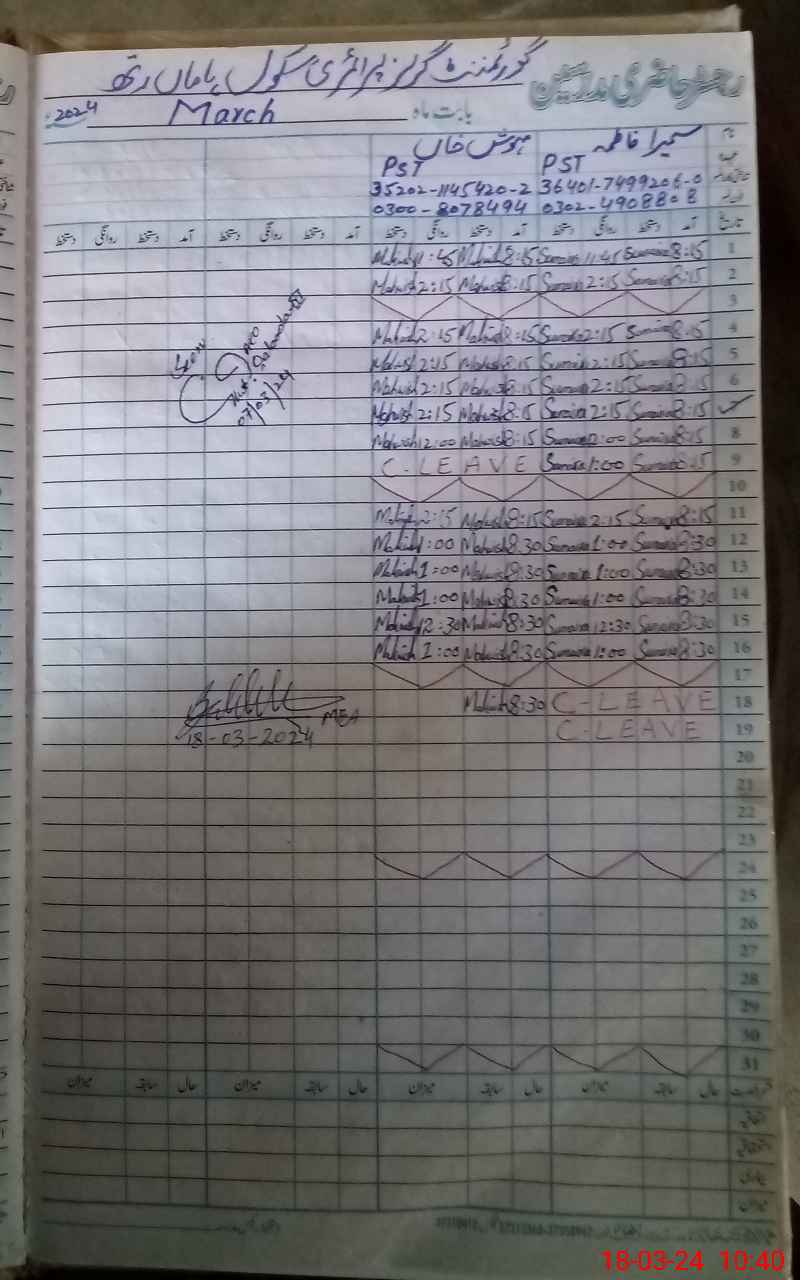 رجسٹر حاضری مدرسین گورنمنٹ گرلز پرائمری سکول
بابت ماہ March 2024
نام سمیرا فاطمہ مہوش خاں
PST PST
36401-7499206-0 35202-1145420-2
0302-4908808 0300-8078494
تاریخ آمد دستخط روانگی دستخط آمد دستخط روانگی دستخط آمد دستخط روانگی دستخط آمد دستخط روانگی دستخط
1 8:15 Sumaira 11:45 Sumaira 8:15 Mahwish 11:45 Mahwish
2 8:15 Sumaira 2:15 Sumaira 8:15 Mahwish 2:15 Mahwish
3
4 8:15 Sumaira 2:15 Sumaira 8:15 Mahwish 2:15 Mahwish
5 8:15 Sumaira 2:15 Sumaira 8:15 Mahwish 2:15 Mahwish
6 8:15 Sumaira 2:15 Sumaira 8:15 Mahwish 2:15 Mahwish
8:15 Sumaira 2:15 Sumaira 8:15 Mahwish 2:15 Mahwish
8 8:15 Sumaira 12:00 Sumaira 8:15 Mahwish 12:00 Mahwish
9 8:15 Sumaira 1:00 Sumaira C-LEAVE
10
11 8:15 Sumaira 2:15 Sumaira 8:15 Mahwish 2:15 Mahwish
12 8:30 Sumaira 1:00 Sumaira 8:30 Mahwish 1:00 Mahwish
13 8:30 Sumaira 1:00 Sumaira 8:30 Mahwish 1:00 Mahwish
14 8:30 Sumaira 1:00 Sumaira 8:30 Mahwish 1:00 Mahwish
15 8:30 Sumaira 12:30 Sumaira 8:30 Mahwish 12:30 Mahwish
16 8:30 Sumaira 1:00 Sumaira 8:30 Mahwish 1:00 Mahwish
17
18 C-LEAVE 8:30 Mahwish
19 C-LEAVE
20
21
22
23
24
25
26
27
28
29
30
31
Seen
AEO
07/03/24
MEA
18-03-2024
حال سابقہ میزان حال سابقہ میزان حال سابقہ میزان حال سابقہ میزان
اتفاقیہ
استحقاقیہ
بیماری
میزان
18-03-24 10:40